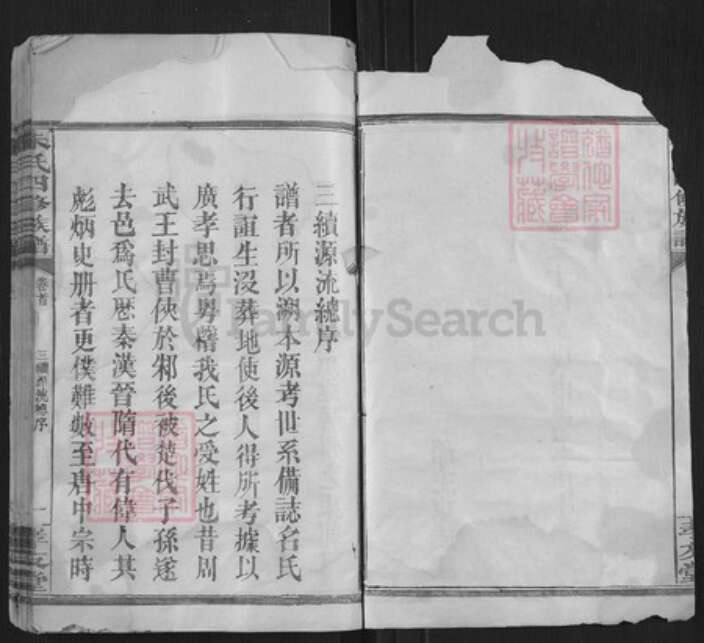 三續源流總序
譜者所以溯本源考世系備誌名氏
行誼生沒葬地使後人得所考據以
廣孝思焉粵稽我氏之受姓也昔周
武王封曹俠於邾後被楚伐子孫遂
去邑爲氏歷秦漢晉隋代有偉人其
彪炳史册者更僕難數至唐中宗時
朱氏四修族譜
卷首
三續源流總序
一
堂
修族譜
堂
FamilySearch
譜學會
特藏
特藏